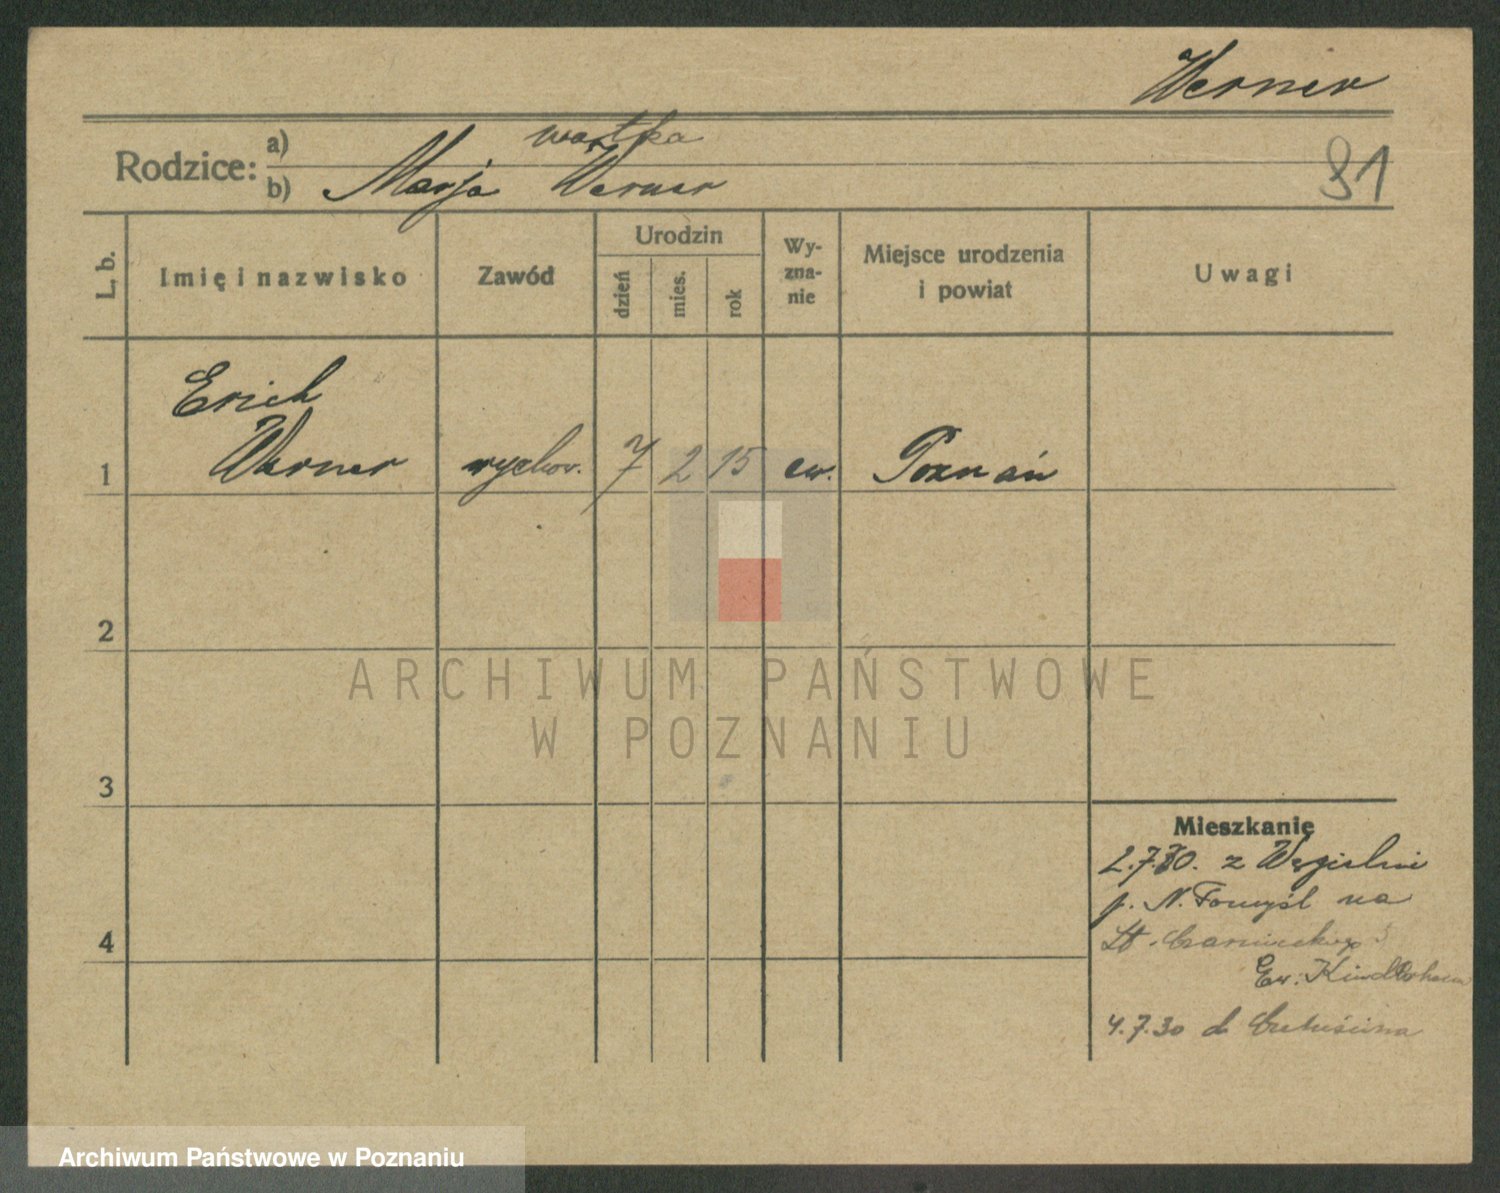 Werner
Rodzice:
a)
b) Marja Werner
81
L. b.
Imię i nazwisko
Zawód
Urodzin
dzień
mies.
rok
Wy-
zna-
nie
Miejsce urodzenia
i powiat
Uwagi
Erich
1 Werner wychow. 7 2 15 ew. Poznań
2
3
4
Mieszkanie
2.7.30. z Węgielni
p. N. Tomyśl na
Czarnieckiego 5
Ew.
4.7.30 do
ARCHIWUM PAŃSTWOWE
W POZNANIU
Archiwum Państwowe w Poznaniu